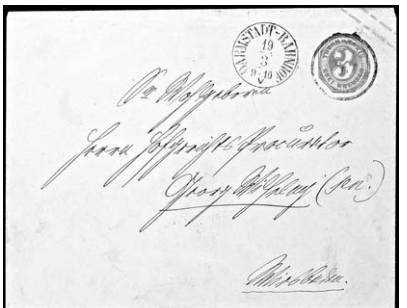 DARMSTADT-BAHNHOF
19
3
9-10
V
3
Sr Wohlgeboren
Herrn Hofgerichts Procurator
Georg (sen.)
Wiesbaden.